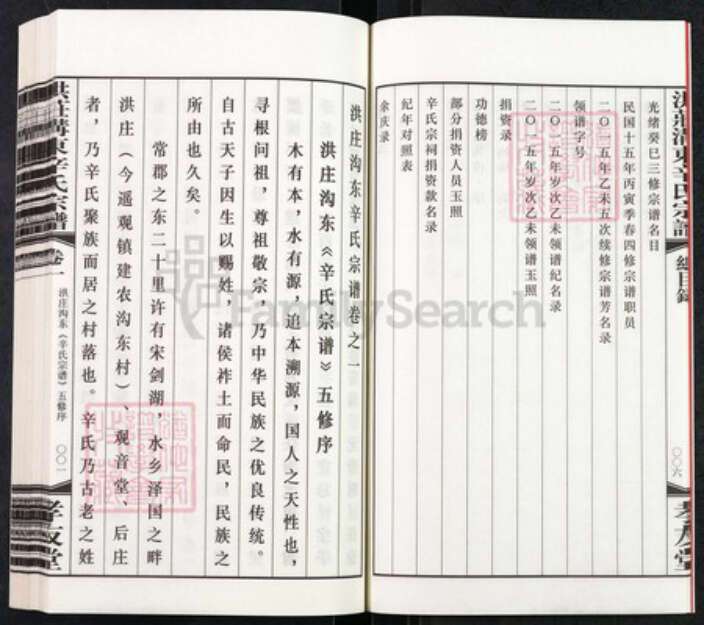 洪莊溝東辛氏宗譜
總目錄
〇〇六
孝友堂
光绪癸巳三修宗谱名目
民国十五年丙寅季春四修宗谱职员
二〇一五年乙未五次续修宗谱芳名录
领谱字号
二〇一五年岁次乙未领谱纪名录
二〇一五年岁次乙未领谱玉照
捐资录
功德榜
部分捐资人员玉照
辛氏宗祠捐资款名录
纪年对照表
余庆录
洪庄沟东辛氏宗谱卷之一
洪庄沟东《辛氏宗谱》五修序
木有本，水有源，追本溯源，国人之天性也，
寻根问祖，尊祖敬宗，乃中华民族之优良传统。
自古天子因生以赐姓，诸侯祚土而命民，民族之
所由也久矣。
常郡之东二十里许有宋剑湖，水乡泽国之畔
洪庄（今遥观镇建农沟东村）、观音堂、后庄
者，乃辛氏聚族而居之村落也。辛氏乃古老之姓
洪莊溝東辛氏宗譜
卷一
洪庄沟东《辛氏宗谱》五修序
〇〇一
孝友堂
FamilySearch